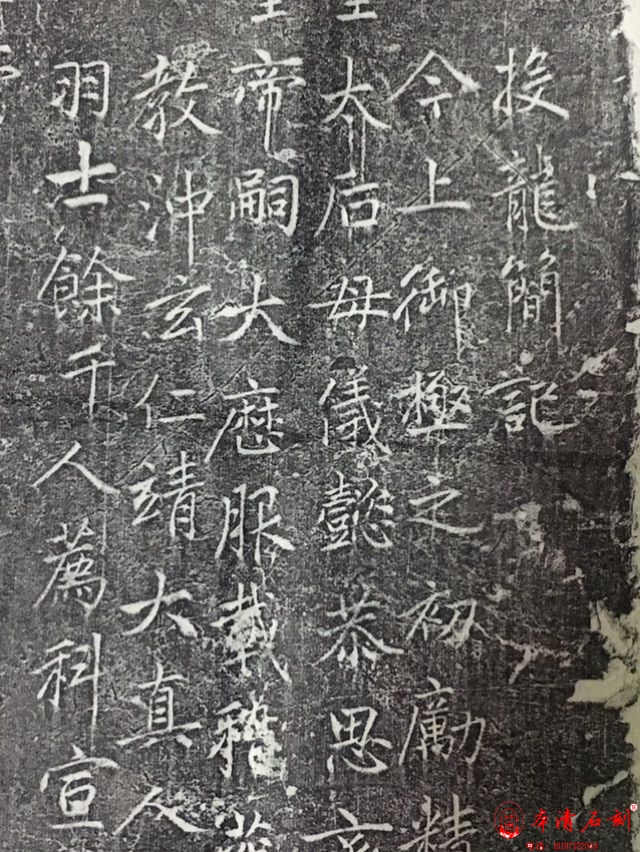 投龍簡記
今上御極之初勵精
太后母儀懿恭思
帝嗣大歷服載稽
教沖玄仁靖大真人
羽士餘千人薦科宣